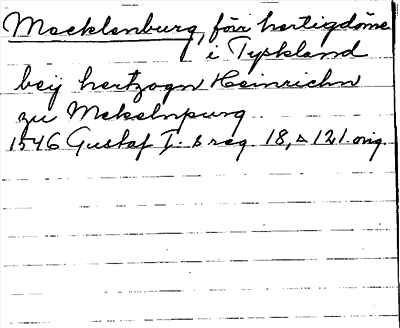 Mecklenburg, förr hertigdöme
i Tyskland
beÿ hertzogn Heinrichn
zu Mekelnpurg
1546 Gustaf I:s reg 18, s 121. orig.